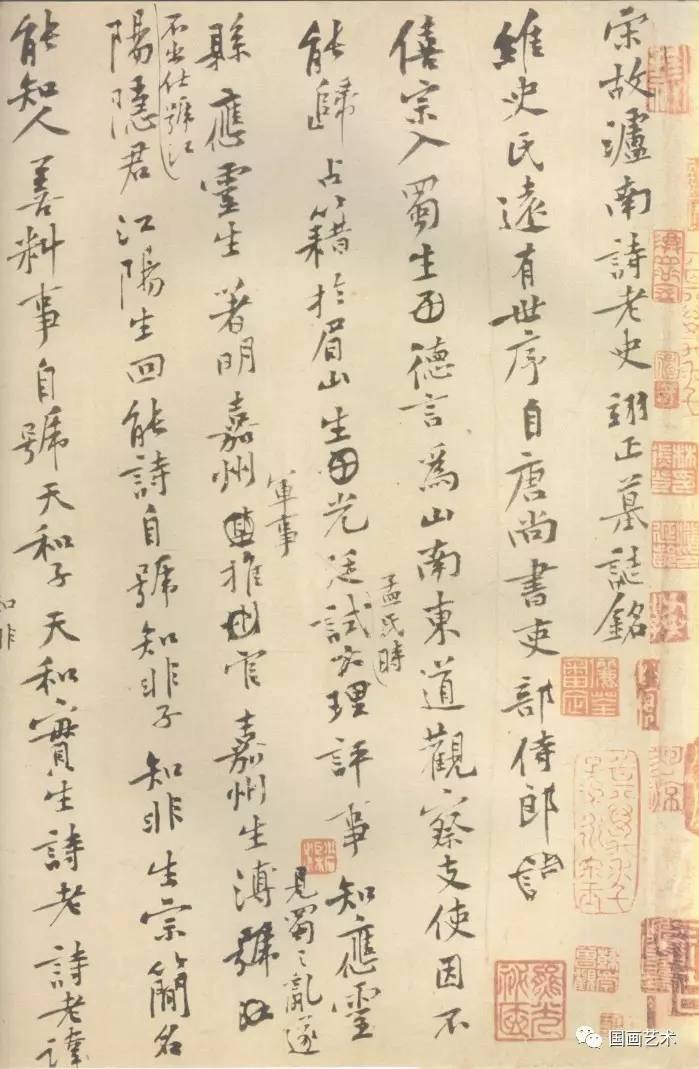 宋故瀘南詩老史翊正墓誌銘
維史氏遠有世序自唐尚書吏部侍郎
僖宗入蜀生德言為山南東道觀察支使因不
孟氏時
能歸占籍於眉山生光廷試大理評事知應靈
軍事
見蜀之亂遂
縣應靈生著明嘉州推官嘉州生溥號江
不出仕號江
陽隱君江陽生回能詩自號知非子知非生宗簡名
能知人善料事自號天和子天和實生詩老詩老諱
知非
国画艺术